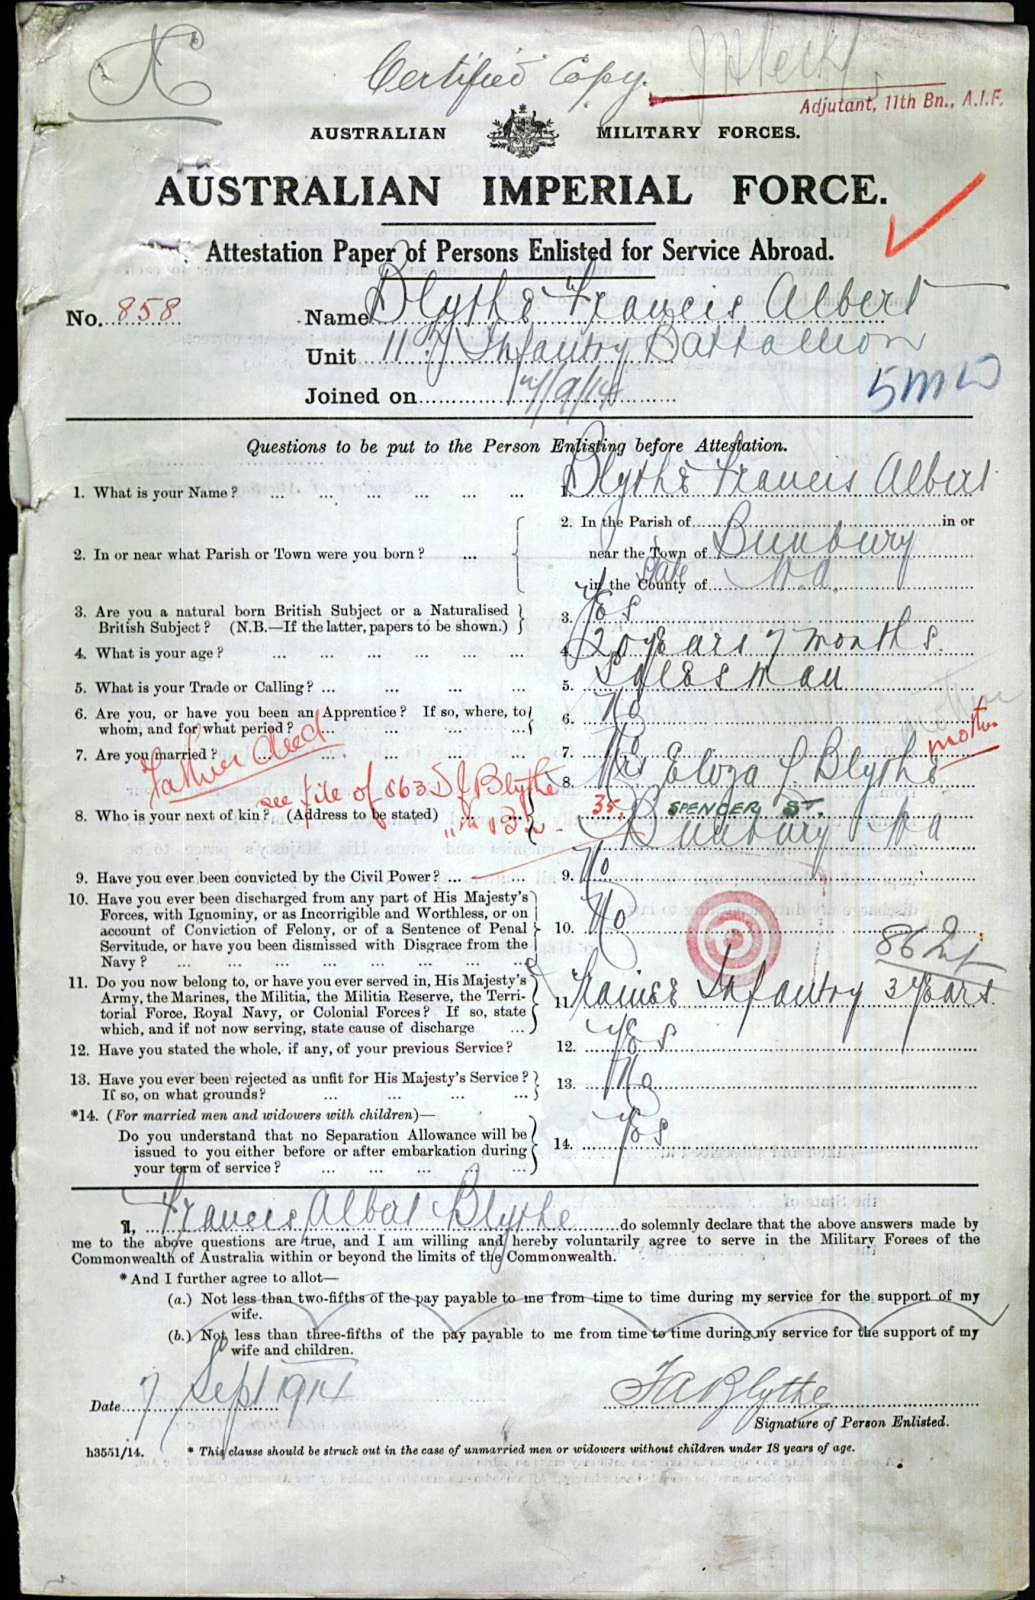 Certified Copy.
Adjutant, 11th Bn., A.I.F.
AUSTRALIAN MILITARY FORCES.
AUSTRALIAN IMPERIAL FORCE.
Attestation Paper of Persons Enlisted for Service Abroad.
No. 858
Name Blythe Francis Albert
Unit 11th Infantry Battallion
Joined on 7/9/14
Questions to be put to the Person Enlisting before Attestation.
1. What is your Name? ... 1. Blythe Francis Albert
2. In or near what Parish or Town were you born? ... 2. In the Parish of in or
near the Town of Bunbury
in the County of State W.A.
3. Are you a natural born British Subject or a Naturalised
British Subject? (N.B.—If the latter, papers to be shown.) 3. Yes
4. What is your age? ... 4. 20 years 7 months.
5. What is your Trade or Calling? ... 5. Salesman
6. Are you, or have you been an Apprentice? If so, where, to
whom, and for what period? ... 6. No
7. Are you married? ... 7. No
Father decd
mother
8. Mrs Eliza J. Blythe
see file of 863 Blythe
8. Who is your next of kin? (Address to be stated) 35, SPENCER ST.
Bunbury Wa
9. Have you ever been convicted by the Civil Power? ... 9. No
10. Have you ever been discharged from any part of His Majesty's
Forces, with Ignominy, or as Incorrigible and Worthless, or on
account of Conviction of Felony, or of a Sentence of Penal
Servitude, or have you been dismissed with Disgrace from the
Navy? ... 10. No
86 Inf
11. Do you now belong to, or have you ever served in, His Majesty's
Army, the Marines, the Militia, the Militia Reserve, the Terri-
torial Force, Royal Navy, or Colonial Forces? If so, state
which, and if not now serving, state cause of discharge ... 11. Trainee Infantry 3 years.
12. Have you stated the whole, if any, of your previous Service? 12. Yes
13. Have you ever been rejected as unfit for His Majesty's Service?
If so, on what grounds? ... 13. No
*14. (For married men and widowers with children)—
Do you understand that no Separation Allowance will be
issued to you either before or after embarkation during
your term of service? ... 14. Yes
I, Francis Albert Blythe do solemnly declare that the above answers made by
me to the above questions are true, and I am willing and hereby voluntarily agree to serve in the Military Forces of the
Commonwealth of Australia within or beyond the limits of the Commonwealth.
* And I further agree to allot—
(a.) Not less than two-fifths of the pay payable to me from time to time during my service for the support of my
wife.
(b.) Not less than three-fifths of the pay payable to me from time to time during my service for the support of my
wife and children.
Date 7 Sept 1914
F A Blythe
Signature of Person Enlisted.
h3551/14. * This clause should be struck out in the case of unmarried men or widowers without children under 18 years of age.